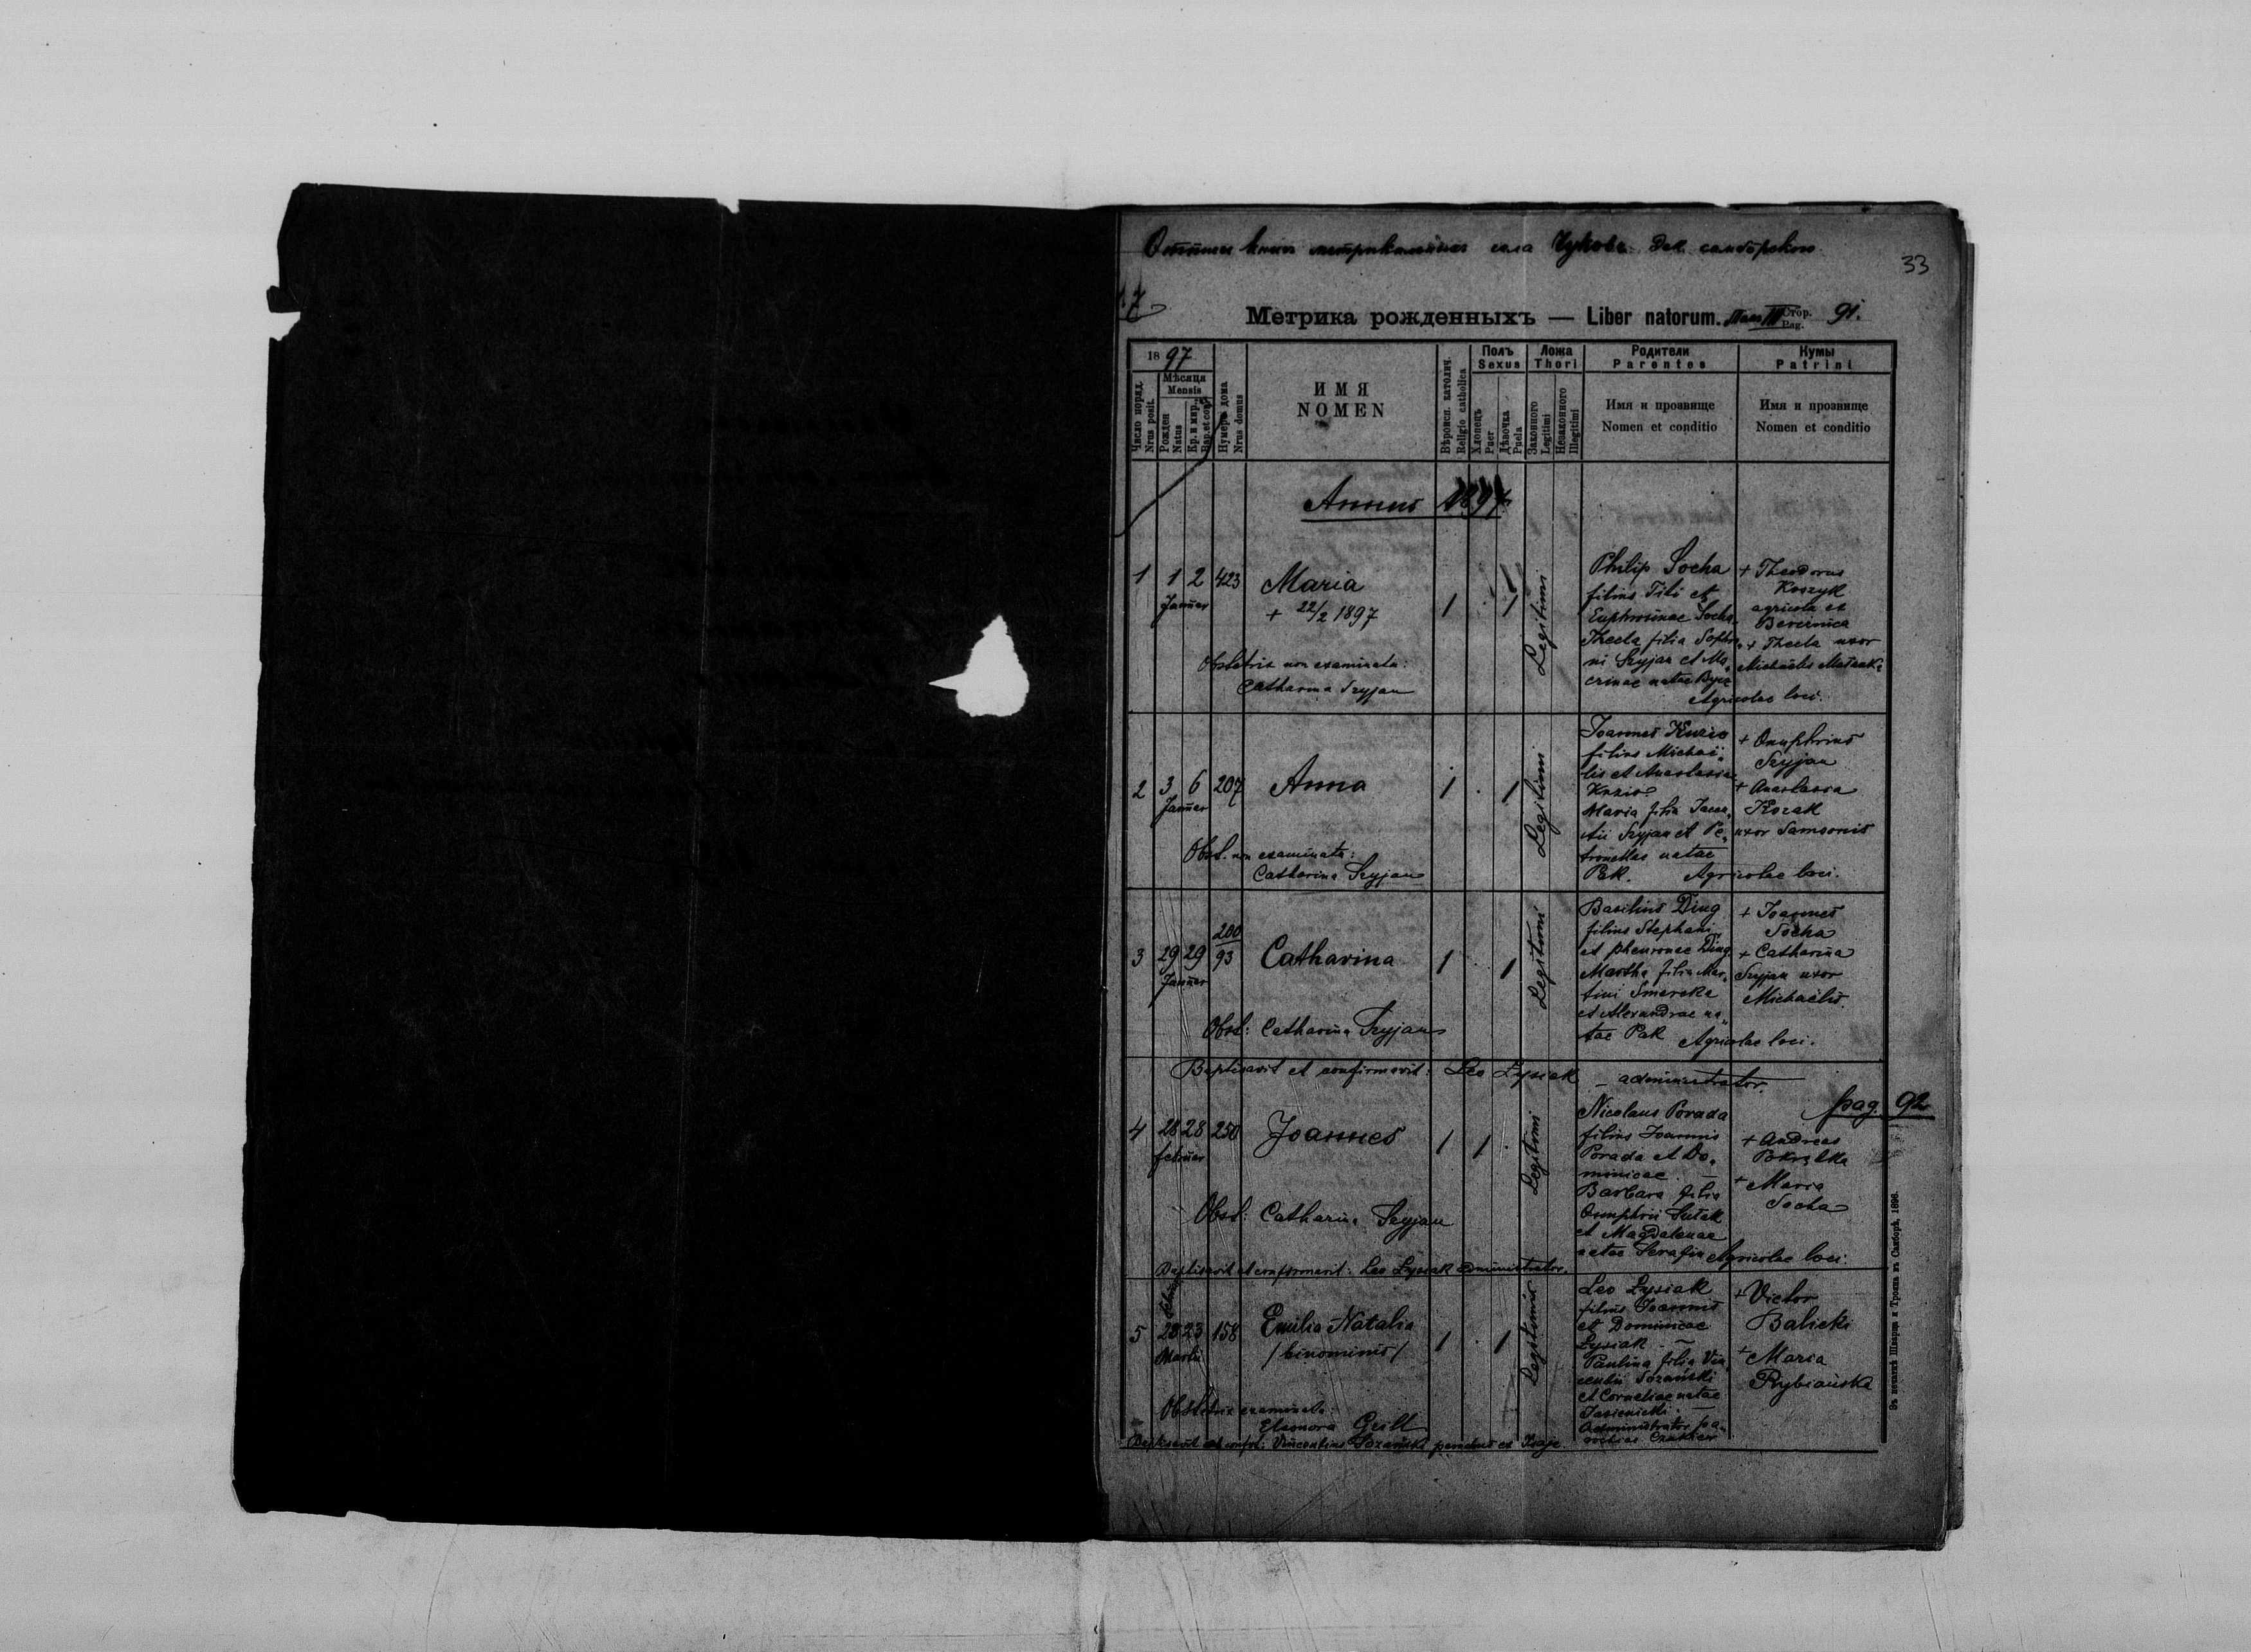 книгъ метрикальныхъ села Чуковъ дек. самборского
33
Метрика рожденныхъ — Liber natorum. Томъ III Стор. Pag. 91.
18 97
Число поряд. Nrus posit.
Мѣсяця Mensis
Рожден Natus
Кр. и мир. Bap. et conf.
Нумеръ дома Nrus domus
ИМЯ
NOMEN
Вѣроисп. католич. Religio catholica
Полъ Sexus
Хлопець Puer
Дѣвочка Puela
Ложа Thori
Законного Legitimi
Незаконного Illegitimi
Родители Parentes
Имя и прозвище
Nomen et conditio
Кумы Patrini
Имя и прозвище
Nomen et conditio
Annus 1897
1 1 2 423 Maria 1 . 1 Legitimi
Januar
+ 22/2 1897
Obstetrix non examinata:
Catharina Szyjan
Philip Socha
filius Titi et
Euphrosinae Socha
Thecla filia Sophro„
ni Szyjan et Ma„
crinae natae Byez
Agricolae loci.
+ Theodorus
Koszyk
agricola ex
Berernica
+ Thecla uxor
Michaelis
2 3 6 207 Anna 1 . 1 Legitimi
Januar
Obst. non examinata:
Catharina Szyjan
Joannes Kuzio
filius Michaë„
lis et Anastasiae
Kuzio
Maria filia
Szyjan et Pe„
tronellae natae
Pak. Agricolae loci.
+ Onuphrius
Szyjan
+ Anastasia
Kozak
uxor Samsonis
3 29 29 200/93 Catharina 1 . 1 Legitimi
Januar
Obst: Catharina Szyjan
Basilius Ding
filius Stephani
et Phevroniae Ding
Martha filia Mar„
tini Smereka
et Alexandrae na„
tae Pak Agricolae loci.
+ Joannes
Socha
+ Catharina
Szyjan uxor
Michaëlis.
Baptisavit et confirmavit: Leo Łysiak – administrator.
pag. 92
4 28 28 250 Joannes 1 1 . Legitimi
Februar
Obst: Catharina Szyjan
Nicolaus Porada
filius Joannis
Porada et Do„
minicae. —
Barbara filia
Onuphrii Sutak
et Magdalenae
natae Serafin Agricolae loci.
+ Andreas
+ Maria
Socha
Baptisavit et confirmavit: Leo Łysiak administrator.
5 28 23 158 Emilia Natalia 1 . 1 Legitimi
Martii
/binominis/
Obstetrix examinata:
Eleonora Grill
Leo Łysiak
filius Joannis
et Dominicae
Łysiak —
Paulina filia Vin„
centii Sozański
et Corneliae natae
Jasienicki. —
Administrator pa„
rochiae
+ Victor
Balicki
+ Maria
Rybiańska
Baptisavit et confir: Vincentius Sozański parochus ex
Зъ печатнѣ Шварца и Трояна въ Самборѣ, 1896.